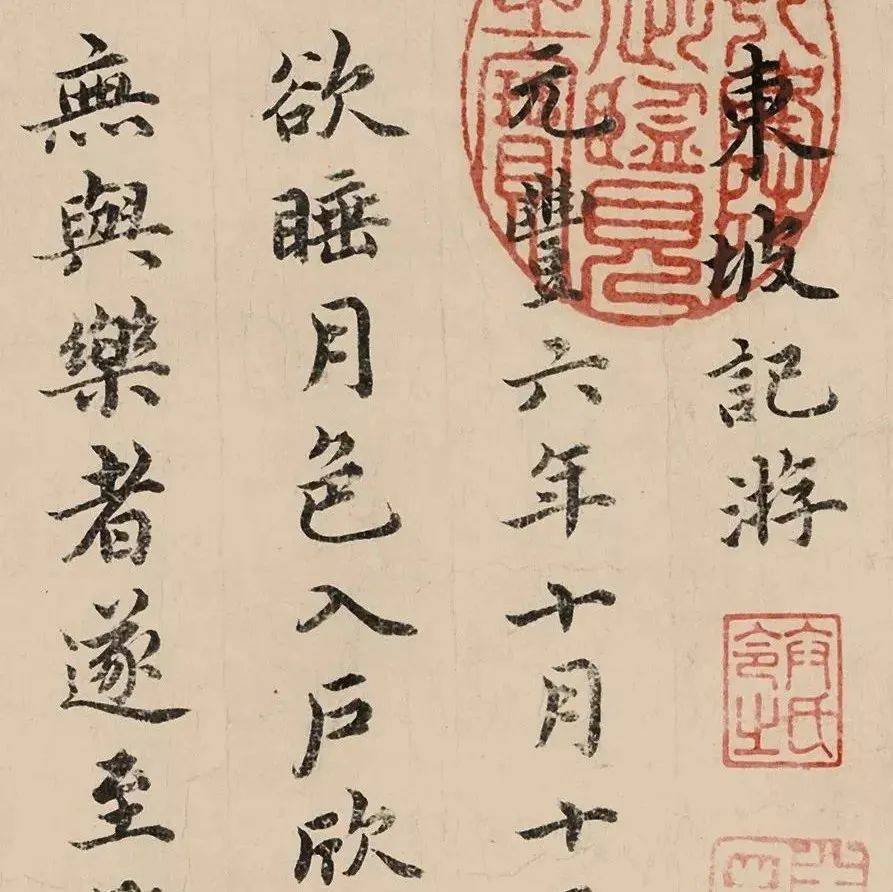 東坡記游
元豐六年十月十
欲睡月色入戶欣
無與樂者遂至